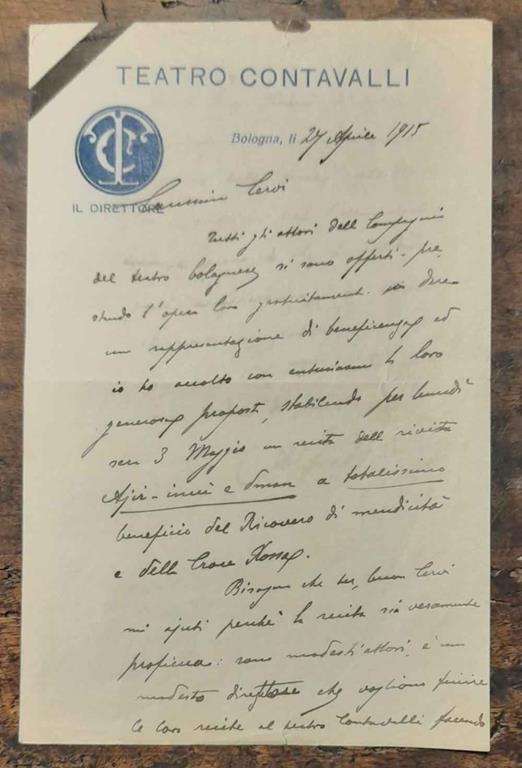 TEATRO CONTAVALLI
Bologna, li 27 Aprile 1915
IL DIRETTORE
Carissimo Cervi
Tutti gli attori della Compagnia
del teatro bolognese si sono offerti - pre-
stando l'opera loro gratuitamente di dare
una rappresentazione di beneficenza ed
io ho accolto con entusiasmo la loro
generosa proposta, stabilendo per lunedì
sera 3 Maggio una recita della rivista
Ajir-incù e dman a totalissimo
beneficio del Ricovero di mendicità
e della Croce Rossa.
Bisogna che tu, buon Cervi
mi ajuti perchè la recita sia veramente
proficua: sono modesti attori, è un
modesto direttore che vogliono finire
le loro recite al teatro Contavalli facendo